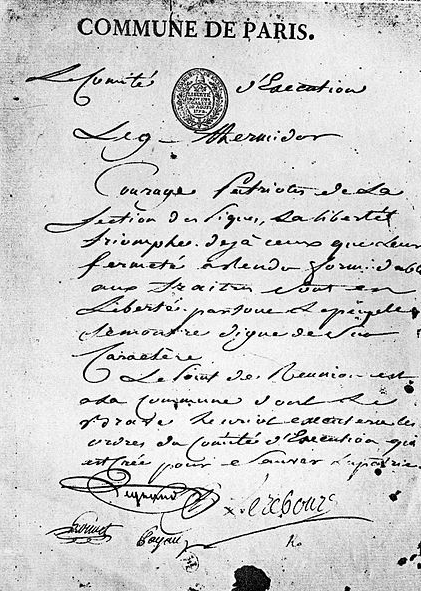 COMMUNE DE PARIS.
Le Comité d'Execution
LIBERTÉ
EGALITÉ
Le 9 thermidor
Courage Patriotes de La
Section des Piques, La liberté
triomphe. deja ceux que Leur
fermeté a rendu formidable
aux traitres sont en
Liberté. partout Le peuple
se montre digne de Son
Caractère
Le Point de Reunion est
a La Commune dont Le
Brave henriot executera les
ordres du Comité d'Execution qui
est Crée pour Sauver La patrie.
Legrand Lerebours
Louvet Payan
Ro